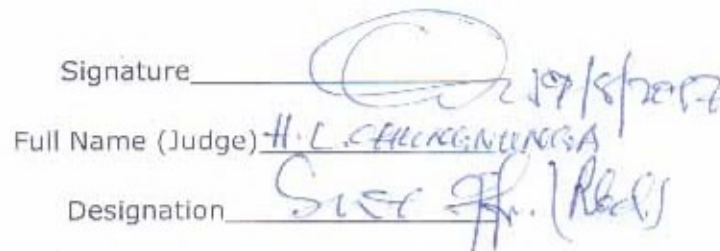 Signature 19/8/2017
Full Name (Judge) H. L. CHUNGNUNGA
Designation (Red.)